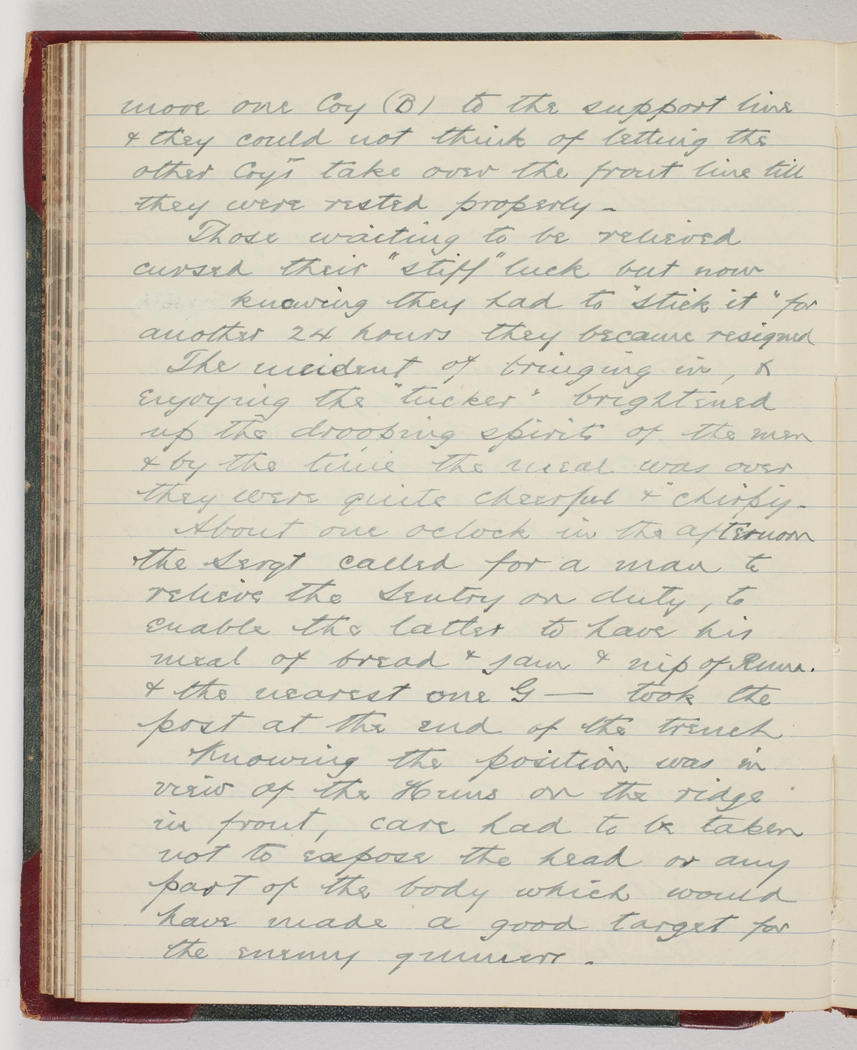 move one Coy (B) to the support line
& they could not think of letting the
other Coy's take over the front line till
they were rested properly -
Those waiting to be relieved
cursed their "stiff" luck but now
knowing they had to "stick it" for
another 24 hours they became resigned
The incident of bringing in, &
enjoying the "tucker" brightened
up the drooping spirits of the men
& by the time the meal was over
they were quite cheerful & "chirpy -
About one oclock in the afternoon
the Sergt called for a man to
relieve the Sentry on duty, to
enable the latter to have his
meal of bread & jam & nip of Rum.
& the nearest one G — took the
post at the end of the trench
Knowing the position was in
view of the Huns on the ridge
in front, care had to be taken
not to expose the head or any
part of the body which would
have made a good target for
the enemy gunners -